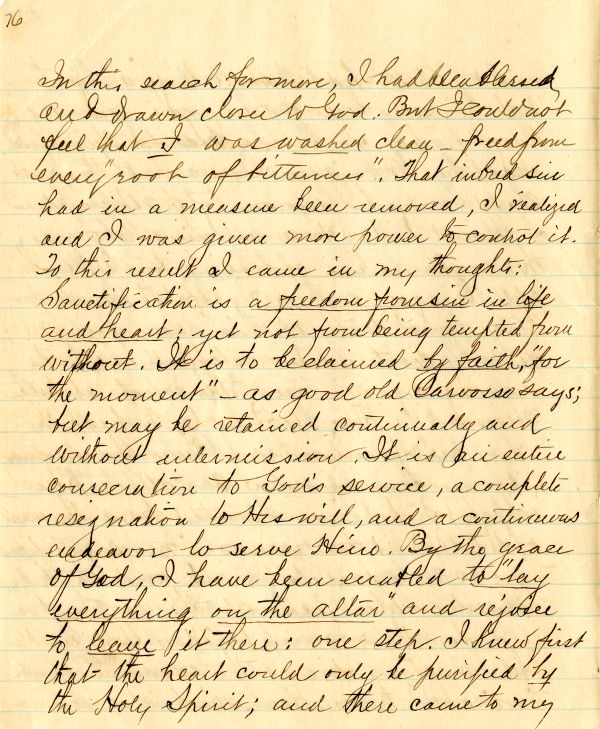 76
In this search for more, I had been blessed
and drawn closer to God. But I could not
feel that I was washed clean – freed from
every "root of bitterness". That inbred sin
had in a measure been removed, I realized
and I was given more power to control it.
To this result I came in my thoughts:
Sanctification is a freedom from sin in life
and heart; yet not from being tempted from
without. It is to be claimed by faith, "for
the moment" – as good old Carvosso says;
but may be retained continually and
without intermission. It is an entire
consecration to God's service, a complete
resignation to His will, and a continuous
endeavor to serve Him. By the grace
of God, I have been enabled to "lay
everything on the altar" and rejoice
to leave it there: one step. I knew first
that the heart could only be purified by
the Holy Spirit; and there came to my